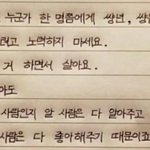 누군가 한 명쯤에게 쌍년, 쌍
려고 노력하지 마세요.
거 하면서 살아요.
아도
사람인지 알 사람은 다 알아주고
사람은 다 좋아해주기 때문이죠